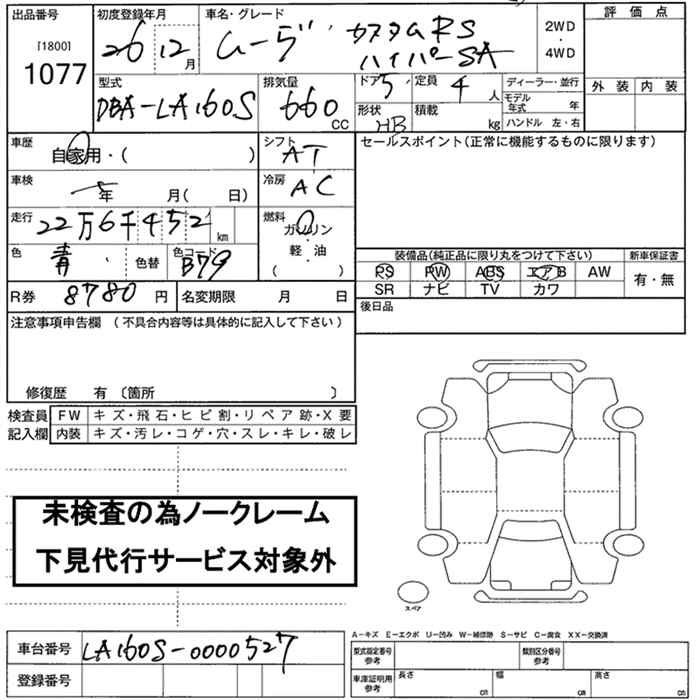 出品番号 初度登録年月 車名・グレード 評価点
[1800]
1077
26 12 月
ムーヴ カスタムRS
ハイパーSA
2WD
・
4WD
外装 内装
型式 排気量 ドア 定員 ディーラー・並行
DBA-LA160S 660 CC 5 4 人 モデル年式 年
形状 積載 ハンドル 左・右
HB kg
車歴 自家用・( ) シフト AT セールスポイント(正常に機能するものに限ります)
車検 年 月( 日) 冷房 AC
走行 22万6千452 km 燃料 ガソリン・軽・油 ( )
色 青 色替 色コード B79
装備品(純正品に限り丸をつけて下さい) 新車保証書
PS PW ABS エアB AW 有・無
SR ナビ TV カワ
R券 8780 円 名変期限 月 日 後日品
注意事項申告欄 (不具合内容等は具体的に記入して下さい)
修復歴 有 〔箇所 〕
検査員 FW キズ・飛石・ヒビ割・リペア跡・X要
記入欄 内装 キズ・汚レ・コゲ・穴・スレ・キレ・破レ
未検査の為ノークレーム
下見代行サービス対象外
スペア
A－キズ E－エクボ U－凹み W－補修跡 S－サビ C－腐食 XX－交換済
車台番号 LA160S-0000527 型式指定番号 参考 類別区分番号 参考
登録番号 車庫証明用 参考 長さ cm 幅 cm 高さ cm